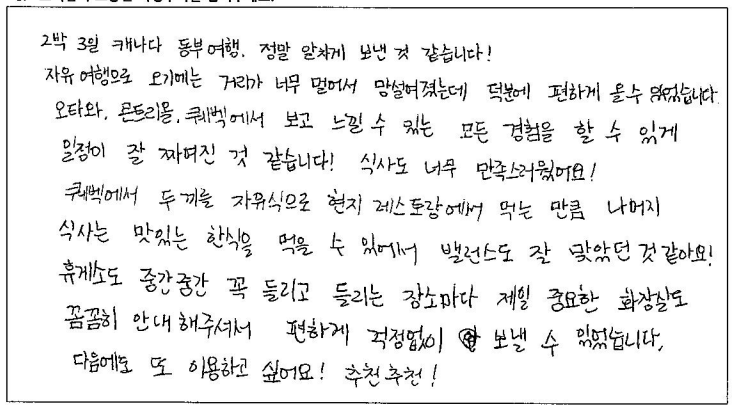 2박 3일 캐나다 동부여행. 정말 알차게 보낸 것 같습니다!
자유여행으로 오기에는 거리가 너무 멀어서 망설여졌는데 덕분에 편하게 올수 있었습니다.
오타와, 몬트리올, 퀘벡에서 보고 느낄 수 있는 모든 경험을 할 수 있게
일정이 잘 짜여진 것 같습니다! 식사도 너무 만족스러웠어요!
퀘벡에서 두끼를 자유식으로 현지 레스토랑에서 먹는 만큼 나머지
식사는 맛있는 한식을 먹을 수 있어서 밸런스도 잘 맞았던 것 같아요!
휴게소도 중간중간 꼭 들리고 들리는 장소마다 제일 중요한 화장실도
꼼꼼히 안내해주셔서 편하게 걱정없이 보낼 수 있었습니다.
다음에도 또 이용하고 싶어요! 추천추천!